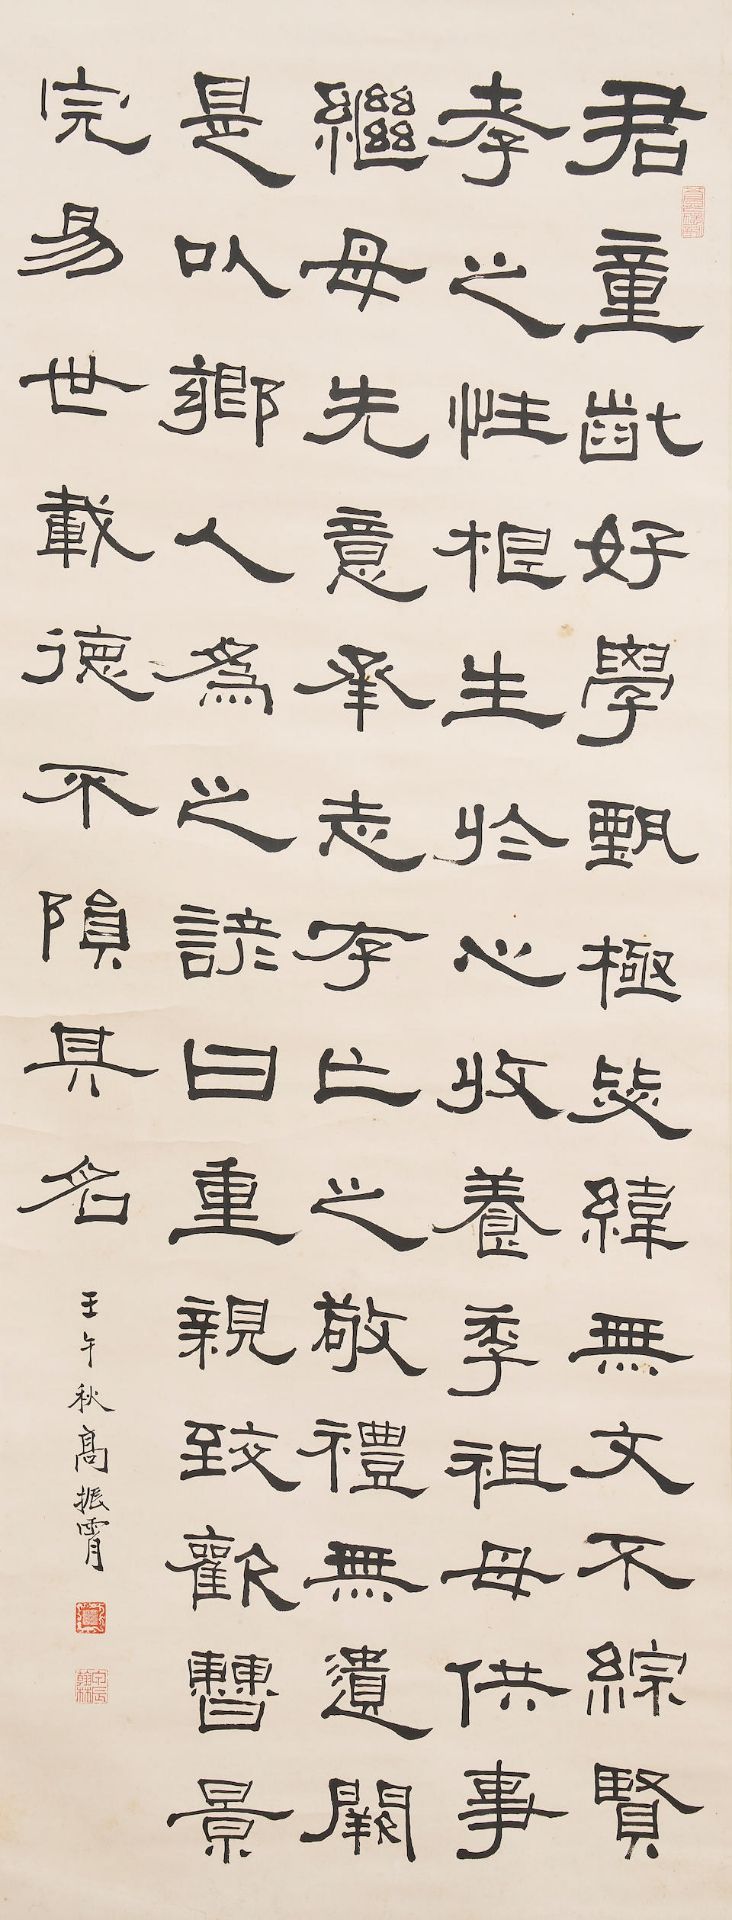 君童齔好學甄極毖緯無文不綜賢
孝之性根生於心收養季祖母供事
繼母先意承志存亡之敬禮無遺闕
是以鄉人爲之諺曰重親致歡曹景
完易世載德不隕其名
壬午秋高振霄